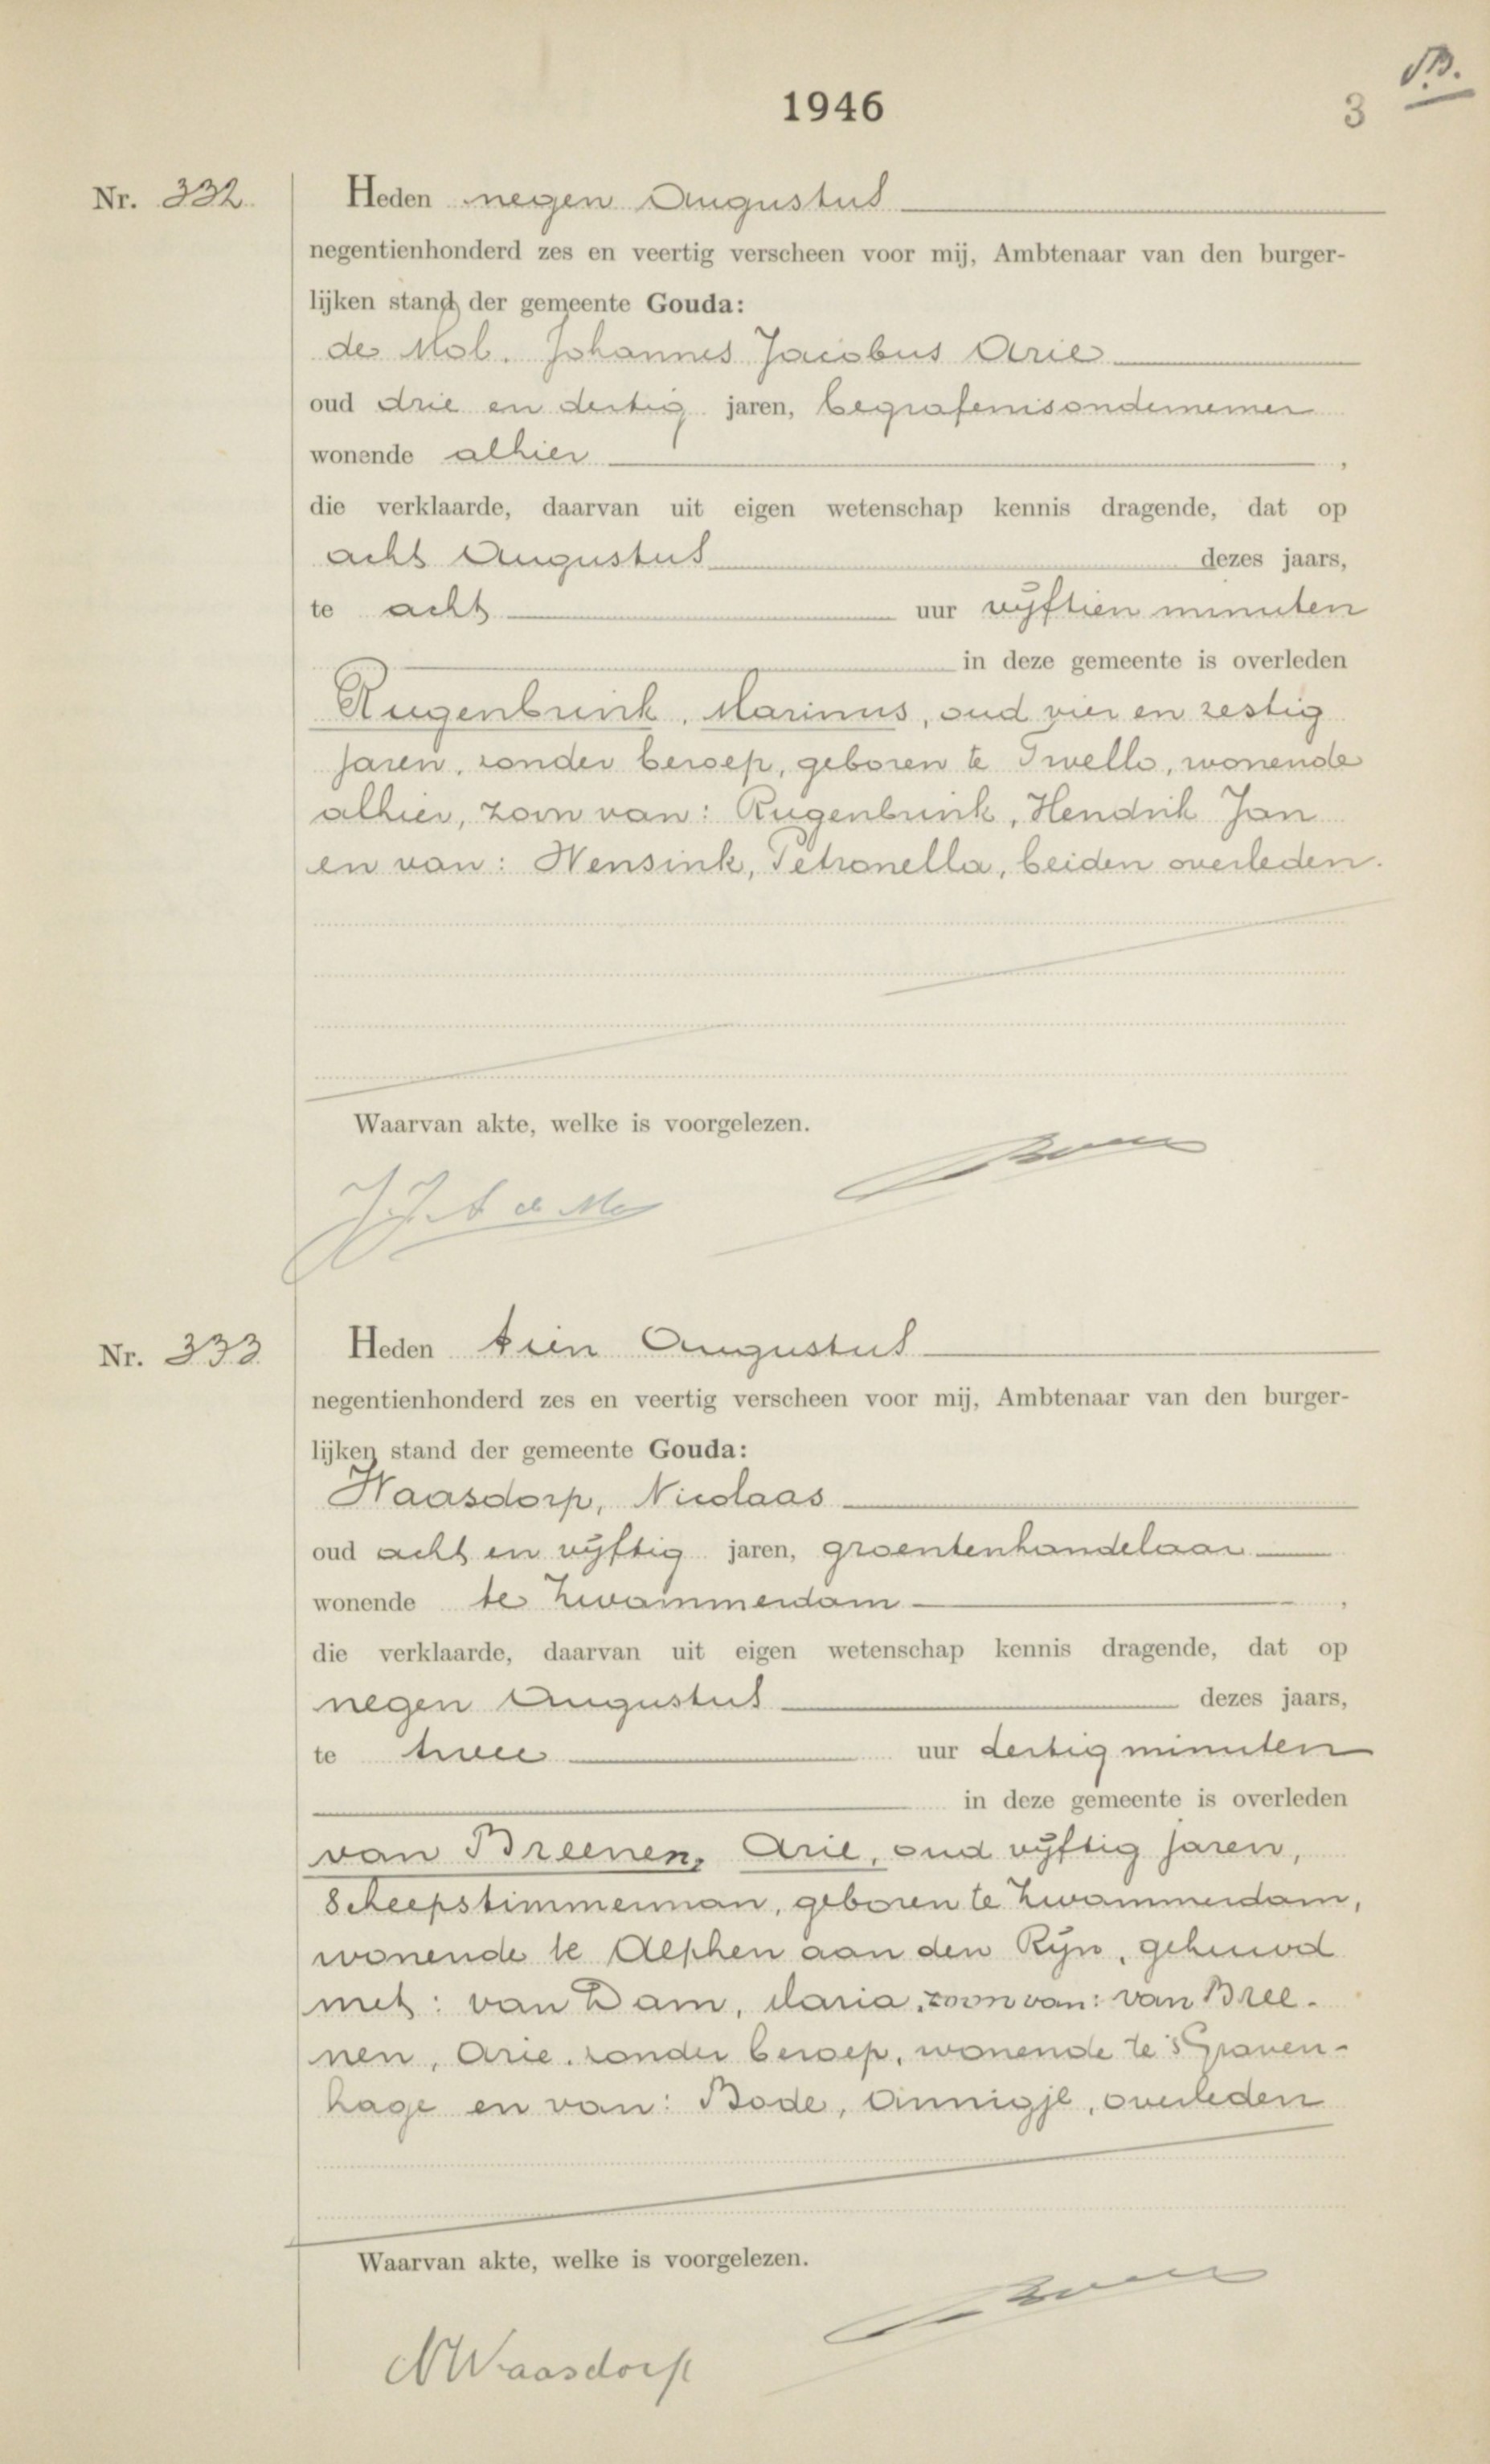 1946
3
B.
Nr. 332.
Heden negen Augustus
negentienhonderd zes en veertig verscheen voor mij, Ambtenaar van den burger-
lijken stand der gemeente Gouda:
de Mol. Johannes Jacobus Arie
oud drie en dertig jaren, begrafenisondernemer
wonende alhier ,
die verklaarde, daarvan uit eigen wetenschap kennis dragende, dat op
acht Augustus dezes jaars,
te acht uur vijftien minuten
in deze gemeente is overleden
Rugenbrink, Marinus, oud vier en zestig
jaren, zonder beroep, geboren te Twello, wonende
alhier, zoon van: Rugenbrink, Hendrik Jan
en van: Wensink, Petronella, beiden overleden.
Waarvan akte, welke is voorgelezen.
J.J.A de Mol
Nr. 333
Heden tien Augustus
negentienhonderd zes en veertig verscheen voor mij, Ambtenaar van den burger-
lijken stand der gemeente Gouda:
Waasdorp, Nicolaas
oud acht en vijftig jaren, groentenhandelaar
wonende te Zwammerdam ,
die verklaarde, daarvan uit eigen wetenschap kennis dragende, dat op
negen Augustus dezes jaars,
te twee uur dertig minuten
in deze gemeente is overleden
van Breenen, Arie, oud vijftig jaren,
Scheepstimmerman, geboren te Zwammerdam,
wonende te Alphen aan den Rijn, gehuwd
met: van Dam, Maria, zoon van: van Bree-
nen, Arie, zonder beroep, wonende te 's Graven-
hage en van: Bode, Annigje, overleden
Waarvan akte, welke is voorgelezen.
N Waasdorp